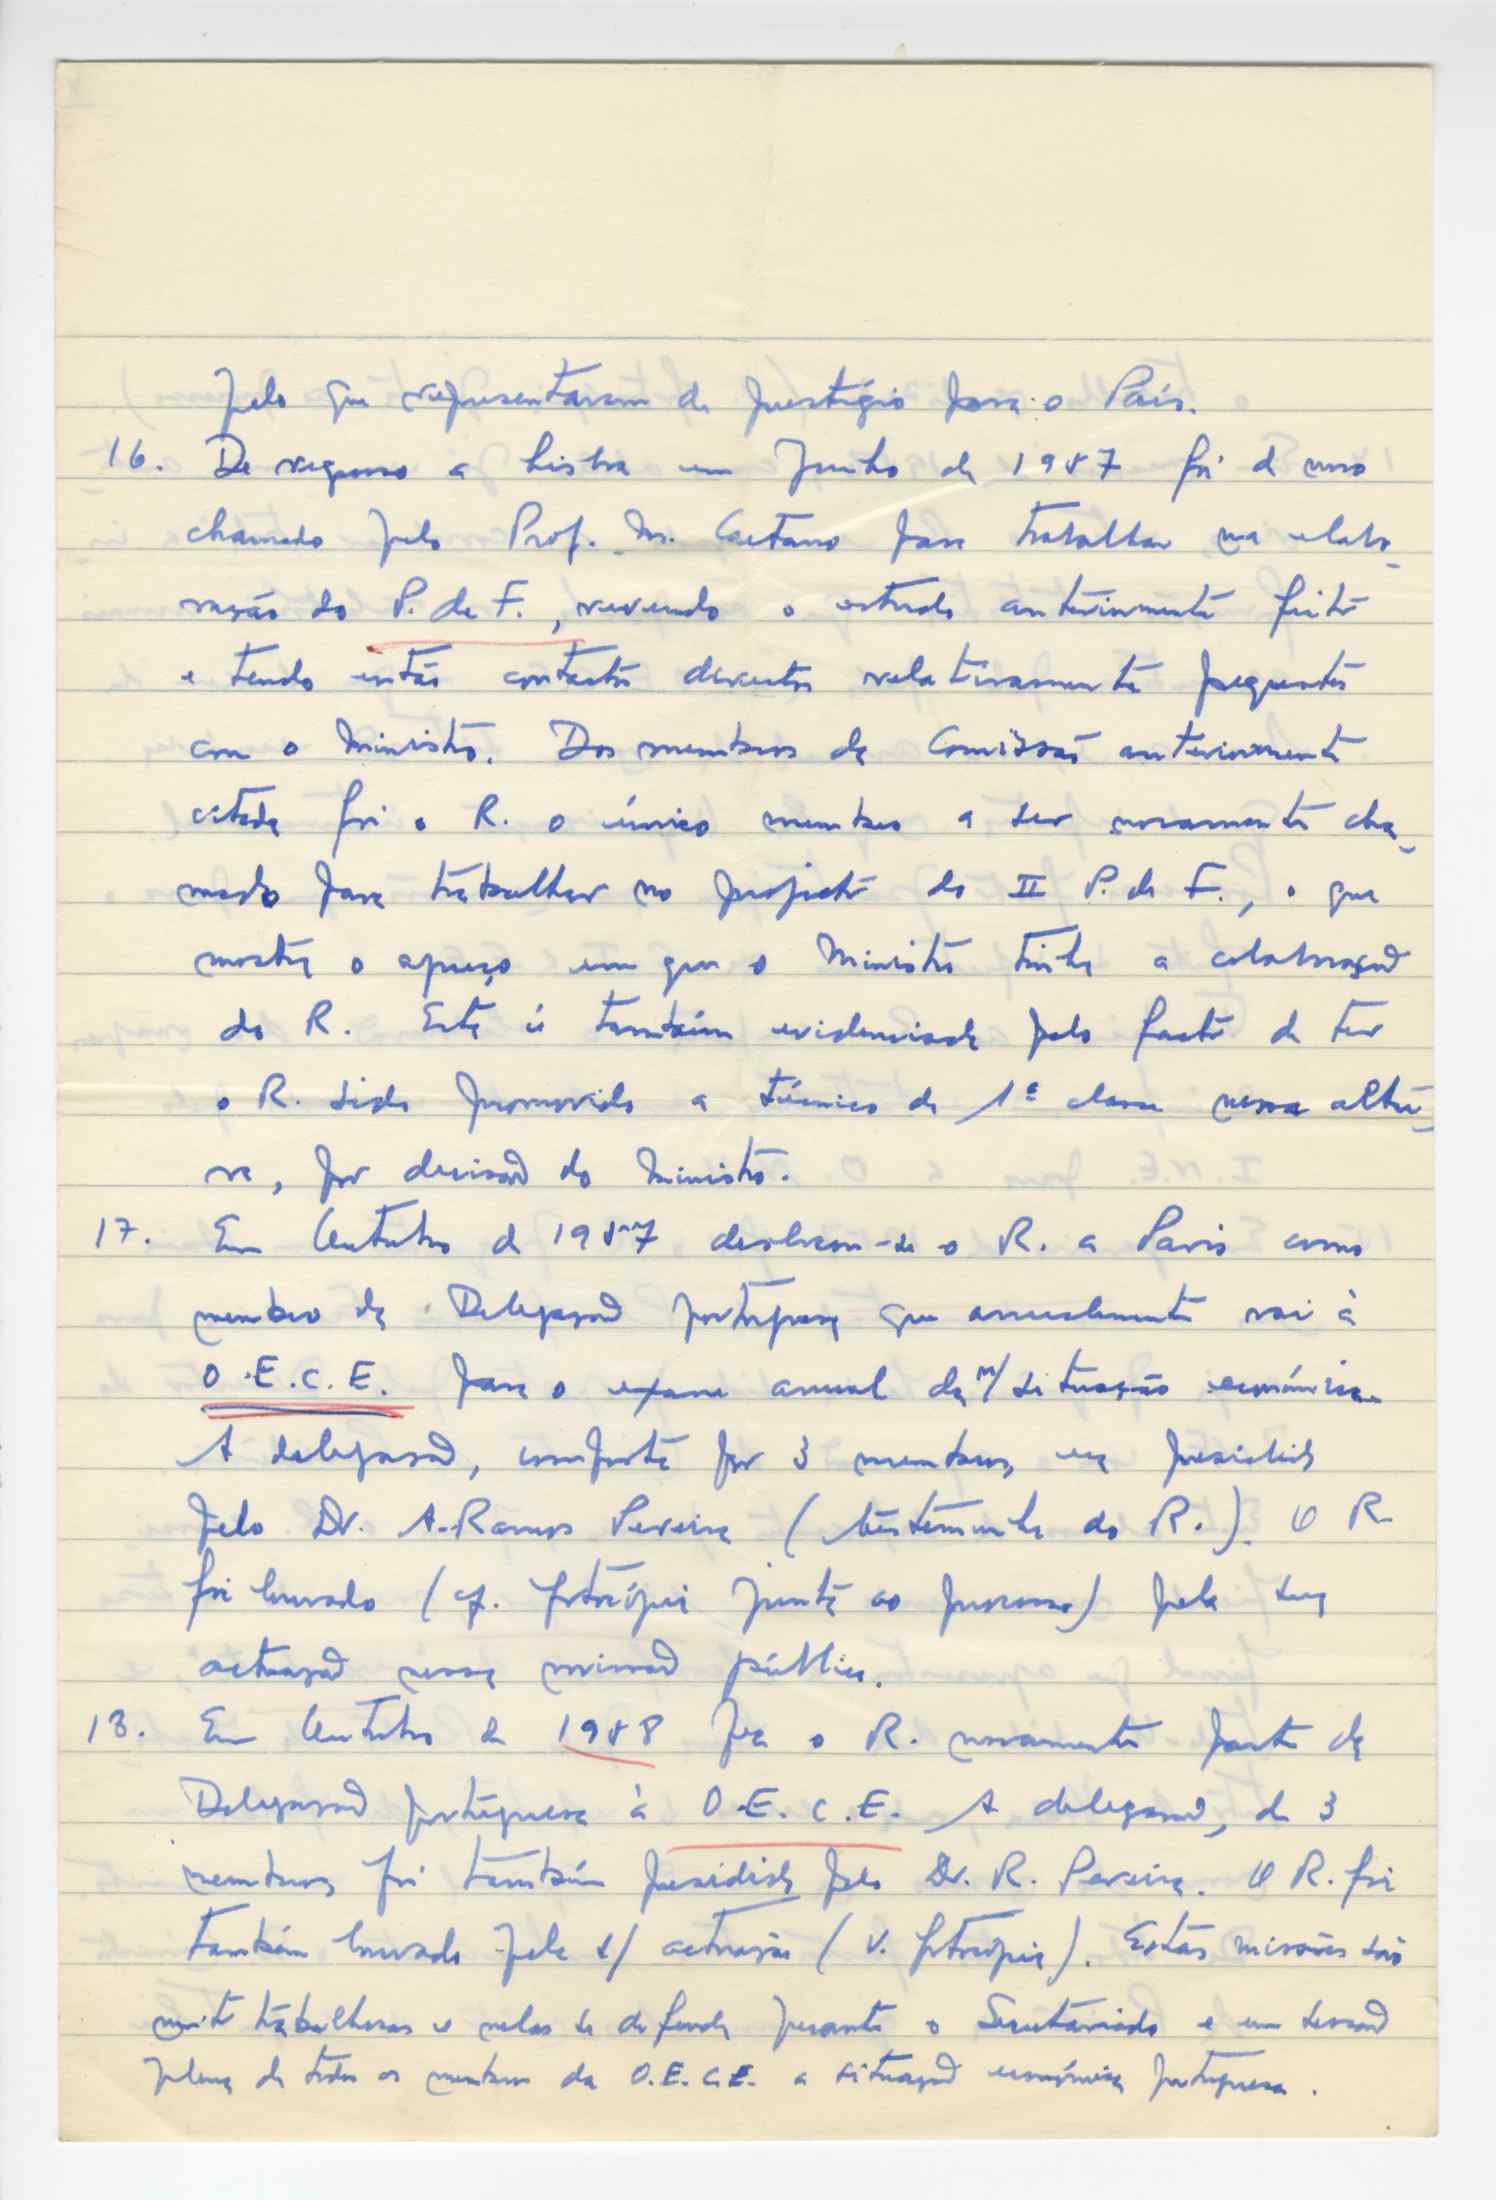 pelo que representaram de prestígio para o País.
16. De regresso a Lisboa em Junho de 1957 foi de novo
chamado pelo Prof. M. Caetano para trabalhar na elabo-
ração do P. de F., revendo o estudo anteriormente feito
e tendo então contactos directos relativamente frequentes
com o Ministro. Dos membros da Comissão anteriormente
citada foi o R. o único membro a ser novamente cha-
mado para trabalhar no projecto do II P. de F., o que
mostra o apreço em que o Ministro tinha a colaboração
do R. Esta é também evidenciada pelo facto de ter
o R. sido promovido a técnico de 1ª classe nessa altu-
ra, por decisão do Ministro.
17. Em Outubro de 1957 deslocou-se o R. a Paris como
membro da Delegação portuguesa que anualmente vai à
O.E.C.E. para o exame anual da n/ situação económica.
A delegação, composta por 3 membros, era presidida
pelo Dr. A. Ramos Pereira (testemunha do R.). O R.
foi louvado (cf. fotocópia junta ao processo) pela sua
actuação nessa missão pública.
18. Em Outubro de 1958 fez o R. novamente parte da
Delegação portuguesa à O.E.C.E. A delegação, de 3
membros, foi também presidida pelo Dr. R. Pereira. O R. foi
também louvado pela s/ actuação (v. fotocópia). Estas missões são
muito trabalhosas e nelas se defende perante o Secretariado e em sessão
plena de todos os membros da O.E.C.E. a situação económica portuguesa.